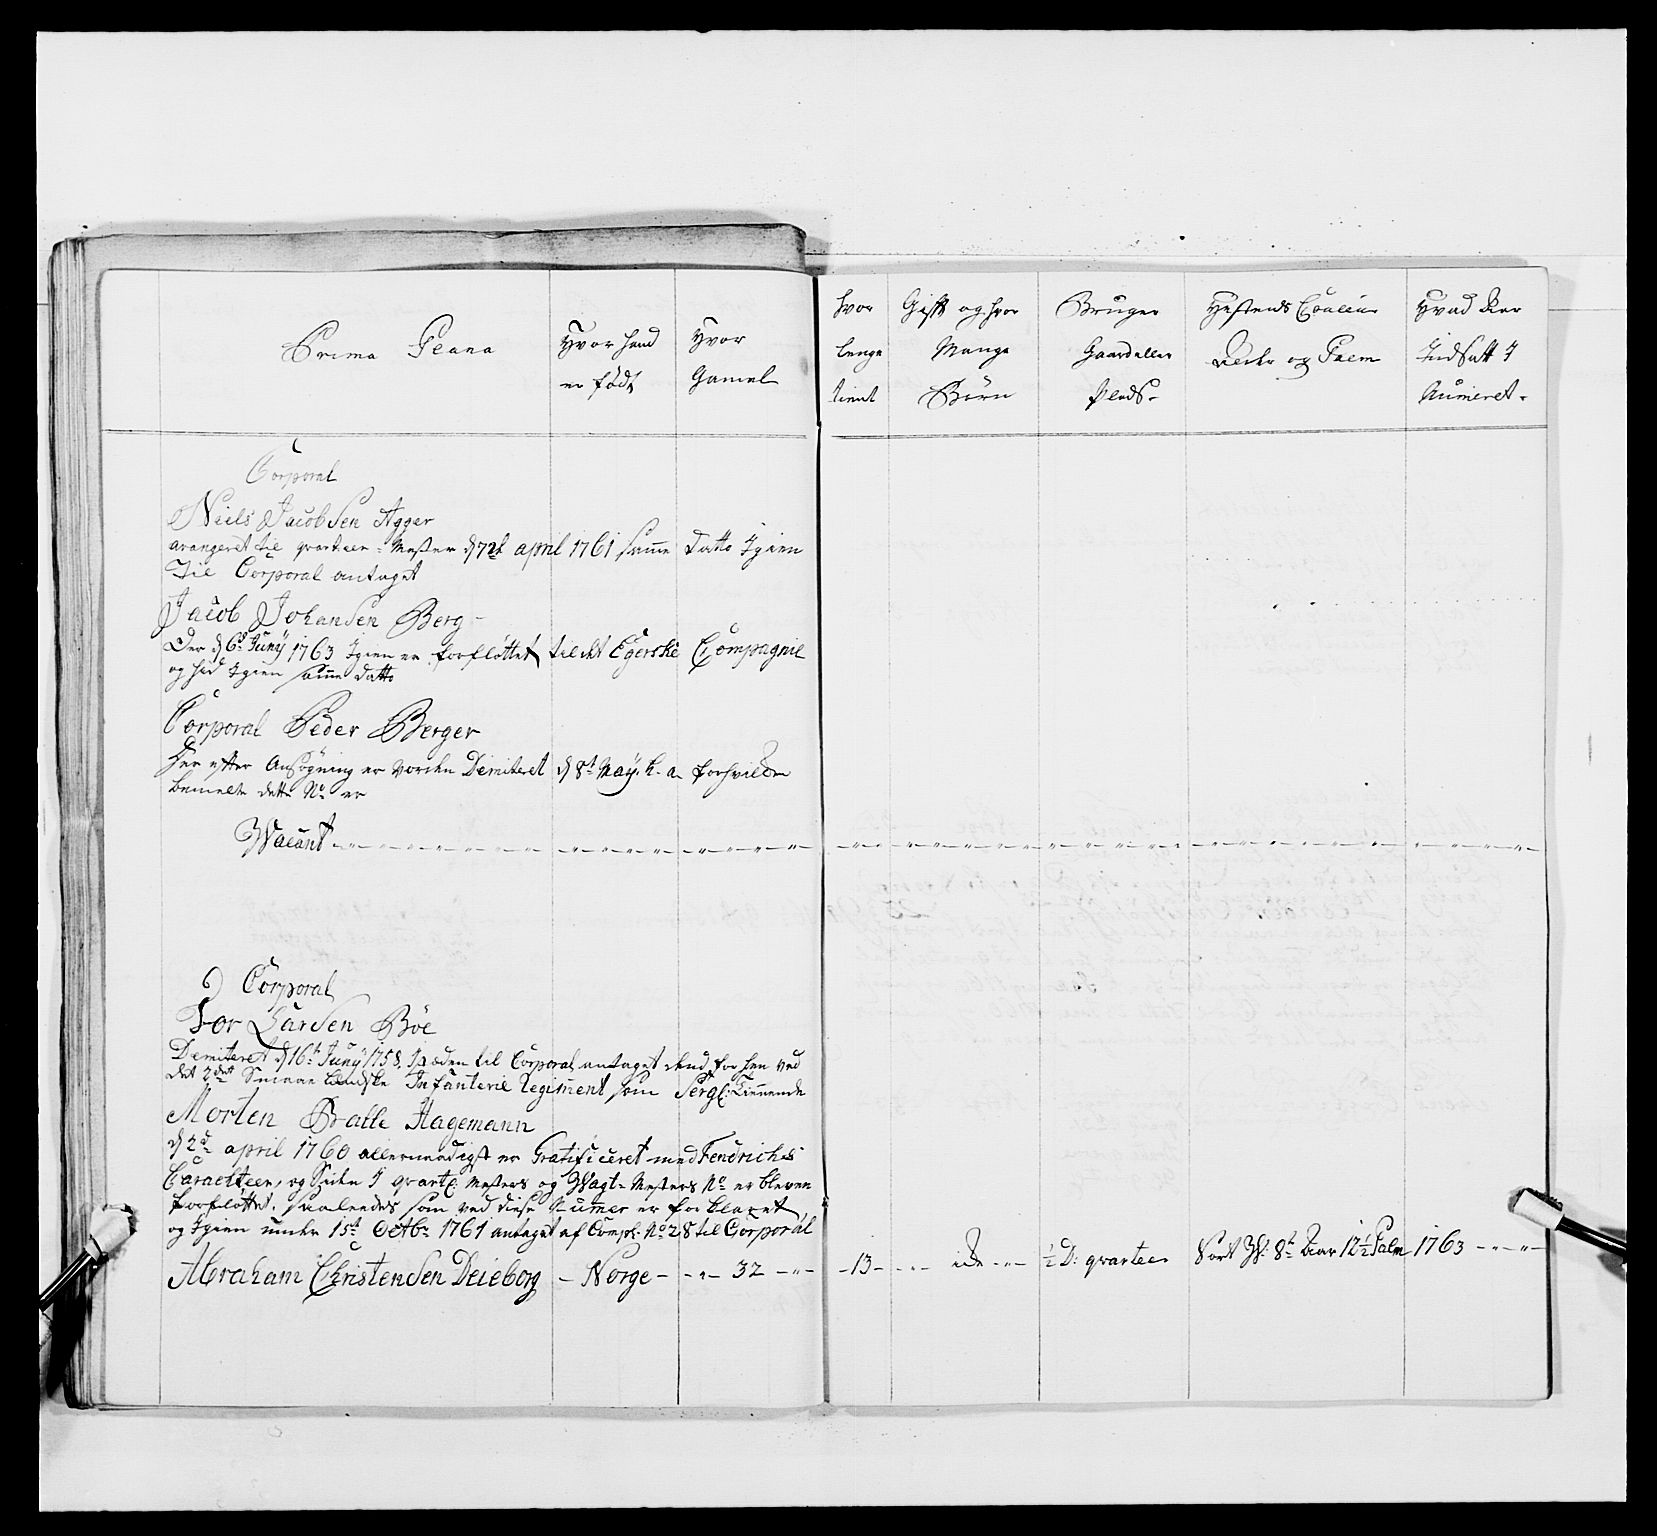 Prima Plana
Hvor hand
er född
Hvor
Gamel
hvor
lenge
tient
Gift og hvor
Mange
Börn
Bruger
Gaard eller
Plads
Hestens Couleur
Alder og Palm
Hvad Aar
Indsatt I
Numeret
Corporal
Niels Jacobsen Agger
til qvarteer-Mester april 1761 samme Datto Igien
Til Corporal antaget
Jacob Johansen Berg
Der d 6t Juny 1763 Igien er forfløttet til det Egerske Compagnie
og hid Igien samme Datto
Corporal Peder Berger
Der efter Ansøgning er vorden Demiteret d 8t May h. a. forhvilke
bemelte dette No er
Wacant
2 Corporal
Tor Larsen Böe
Demiteret d 16t Juny 1758. til Corporal antaget for hen ved
det 2det Infanterie Regiment som Serg: Tiennende
Morten Balle Hagemann
d 2d april 1760 allernaadigst er Gratificeret med Fendrichs
Caracteer, og Siden I qvarte: Mesters og Wagt-Mesters No er bleven
forfløttet, saaledes som ved disse Numer er for klaret
og Igien under 15t Octbr 1761 antaget af Comp: No 28 til Corporal
Abraham Christensen Deieborg - Norge - 32 - 13 - ½ D: qvarteer Sort W: 8t Aar 12½ Palm 1763